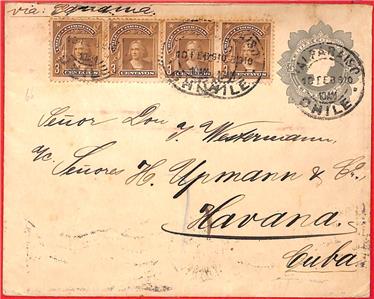 via: Panamá
CENTAVOS CENTAVOS CENTAVOS CENTAVOS
10 FEB 910
CHILE
VALPARAISO
10 FEB 910
CHILE
Señor Don J. Westermann,
c/c. Señores H. Upmann & Co.,
Havana.
Cuba.